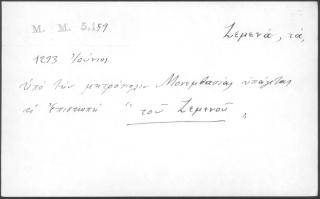 M. M. 5.159
Ζεμενά, τά,
1293 Ἰούνιος
Ὑπό τήν μητρόπολιν Μονεμβασίας ὑπάγεται
ἡ Ἐπισκοπή "τοῦ Ζεμενοῦ"